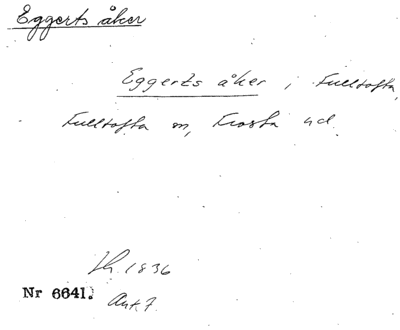 Eggerts åker
Eggerts åker i Fulltofta,
Fulltofta sn, Frosta hd
1836
Nr 6641. Ant. 7.